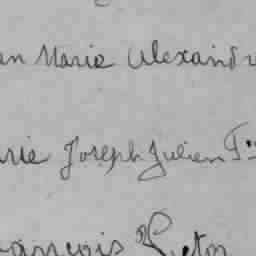 an Marie Alexandr
rie Joseph Julien Fs
rançois Victor